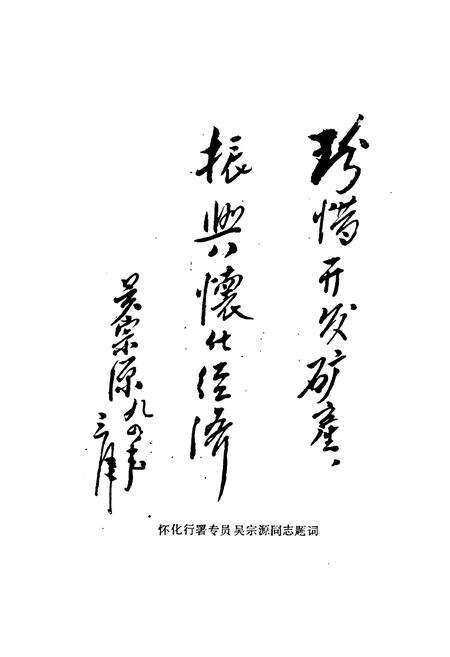 珍惜开发矿产、
振興懷化经济
吴宗源九四年
三月
怀化行署专员吴宗源同志题词